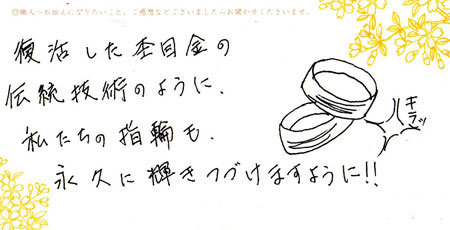 ◎職人へお伝えになりたいこと、ご感想などございましたらお聞かせくださいませ。
復活した杢目金の
伝統技術のように、
私たちの指輪も、
永久に輝きつづけますように!!
キラッ